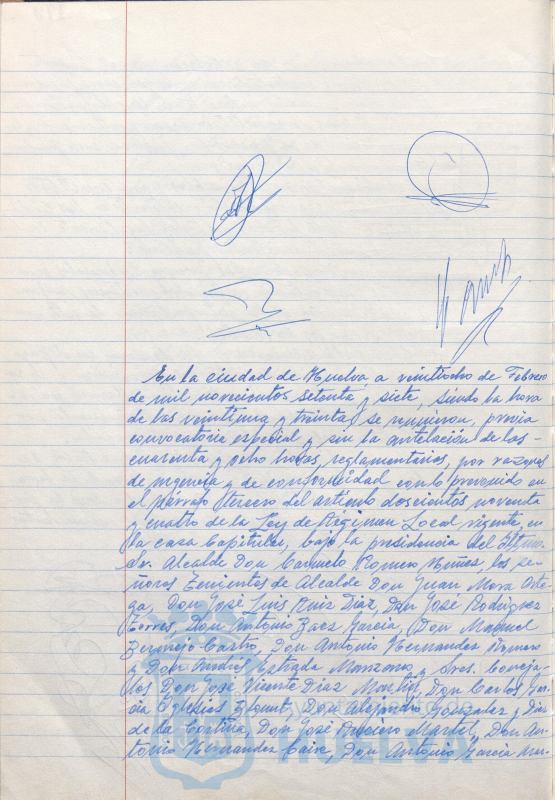 En la ciudad de Huelva, a veintiocho de Febrero
de mil novecientos setenta y siete, siendo la hora
de las veintiuna y treinta, se reunieron, previa
convocatoria especial y sin la antelación de las-
cuarenta y ocho horas, reglamentarias, por razones
de urgencia y de conformidad con lo prevenido en
el párrafo tercero del artículo doscientos noventa
y cuatro de la Ley de Régimen Local vigente, en
la casa Capitular, bajo la presidencia del Iltmo.
Sr. Alcalde Don Carmelo Romero Núñez, los se-
ñores Tenientes de Alcalde Don Juan Mora Orte-
ga, Don José Luis Ruiz Díaz, Don José Rodríguez
Torres, Don Antonio Baez García, Don Manuel
Bermejo Castro, Don Antonio Hernandez Romero
y Don Andrés Estrada Manzano y Sres. Conceja-
les Don José Vicente Díaz Martín, Don Carlos Gar-
cía Iglesias, Don Alejandro Gonzalez y Díaz
de la Cortina, Don José Martel, Don An-
tonio Hernandez, Don Antonio García
Ayuntamiento de
HUELVA